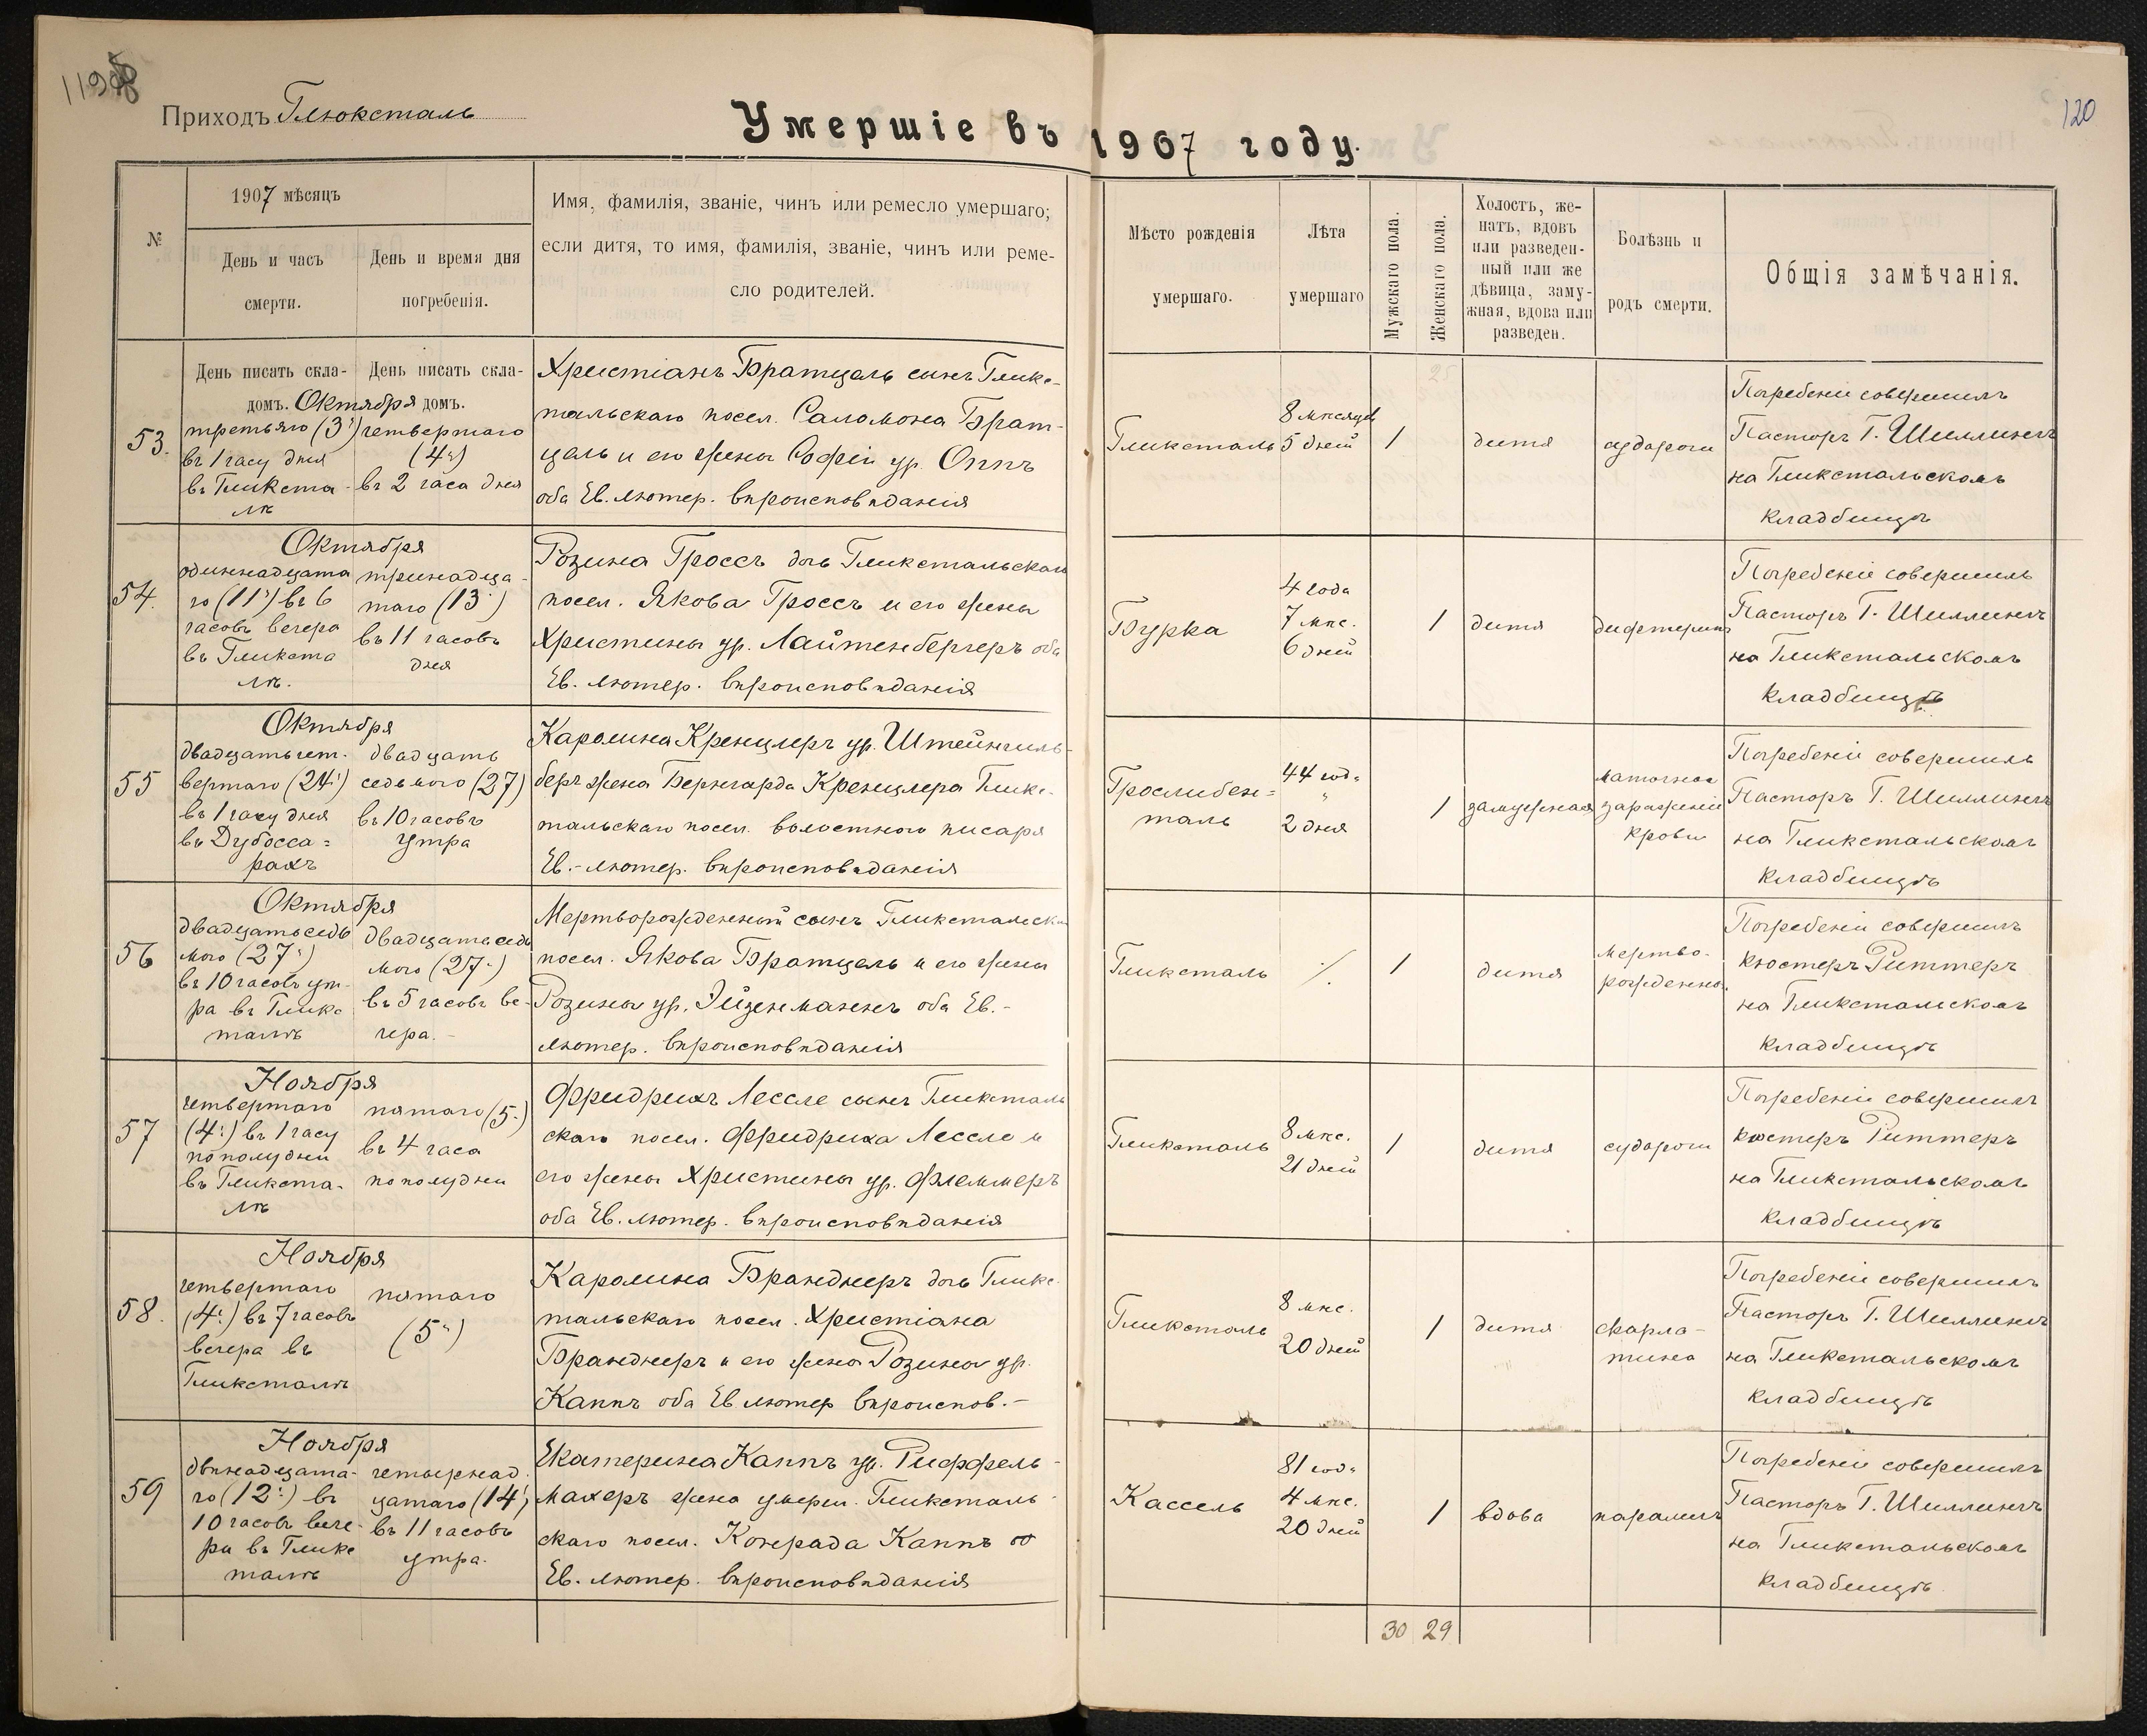 Приходъ Глюксталь
Умершіе въ 1907 году.
120
№
1907 мѣсяцъ
День и часъ
смерти.
День и время дня
погребенія.
Имя, фамилія, званіе, чинъ или ремесло умершаго;
если дитя, то имя, фамилія, званіе, чинъ или реме-
сло родителей.
Мѣсто рожденія
умершаго.
Лѣта
умершаго
Мужскаго пола.
Женскаго пола.
Холостъ, же-
натъ, вдовъ
или разведен-
ный или же
дѣвица, заму-
жная, вдова или
разведен.
Болѣзнь и
родъ смерти.
Общія замѣчанія.
День писать скла-
домъ. Октября
День писать скла-
домъ.
53.
третьяго (3)
въ 1 часу дня
въ Гликста-
лѣ
четвертаго
(4)
въ 2 часа дня
Христіанъ Братцель сынъ Гликс-
тальскаго посел. Саломона Брат-
цель и его жены Софіи ур. Оппъ
оба Ев. лютер. вѣроисповѣданія
Гликсталь
8 мѣсяцев
5 дней
1
дитя
судороги
Погребеніе совершилъ
Пасторъ Г. Шиллингъ
на Гликстальскомъ
кладбищѣ
Октября
54.
одиннадцата
го (11) въ 6
часовъ вечера
въ Гликста
лѣ.
тринадца-
таго (13)
въ 11 часовъ
дня
Розина Гроссъ дочь Гликстальскаго
посел. Якова Гроссъ и его жены
Христины ур. Лайтенбергеръ оба
Ев. лютер. вѣроисповѣданія
Бурка
4 года
7 мѣс.
6 дней
1
дитя
дифтеритъ
Погребеніе совершилъ
Пасторъ Г. Шиллингъ
на Гликстальскомъ
кладбищѣ
Октября
55
двадцать чет-
вертаго (24)
въ 1 часу дня
въ Дубосса=
рахъ
двадцать
седьмого (27)
въ 10 часовъ
утра
Каролина Кренцлеръ ур. Штейнгиль-
беръ жена Бернгарда Кренцлера Гликс-
тальскаго посел. волостного писаря
Ев.-лютер. вѣроисповѣданія
Грослибен=
таль
44 год.
"
2 дня
1
замужная
маточное
зараженіе
крови
Погребеніе совершилъ
Пасторъ Г. Шиллингъ
на Гликстальскомъ
кладбищѣ
Октября
56
двадцать седь
мого (27)
въ 10 часовъ ут-
ра въ Гликс
талѣ
двадцать седь
мого (27)
въ 5 часовъ ве-
чера.-
Мертворожденный сынъ Гликстальск.
посел. Якова Братцель и его жены
Розины ур. Эйзенманнъ оба Ев.-
лютер. вѣроисповѣданія
Гликсталь
./.
1
дитя
мертво-
рожденны.
Погребеніе совершилъ
кюстеръ Риттеръ
на Гликстальскомъ
кладбищѣ
Ноября
57
четвертаго
(4) въ 1 часу
пополудни
въ Гликста-
лѣ
пятаго (5)
въ 4 часа
пополудни
Фридрихъ Лессле сынъ Гликсталь
скаго посел. Фридриха Лессле и
его жены Христины ур. Флеммеръ
оба Ев. лютер. вѣроисповѣданія
Гликсталь
8 мѣс.
21 дней
1
дитя
судороги
Погребеніе совершилъ
кюстеръ Риттеръ
на Гликстальскомъ
кладбищѣ
Ноября
58.
четвертаго
(4) въ 7 часовъ
вечера въ
Гликсталѣ
пятаго
(5)
Каролина Бранднеръ дочь Гликс-
тальскаго посел. Христіана
Бранднеръ и его жена Розины ур.
Каппъ оба Ев лютер вѣроиспов.-
Гликсталь
8 мѣс.
20 дней
1
дитя
скарла-
тина
Погребеніе совершилъ
Пасторъ Г. Шиллингъ
на Гликстальскомъ
кладбищѣ
Ноября
59
двѣнадцата-
го (12) въ
10 часовъ вече-
ра въ Гликс
талѣ
четырнад
цатаго (14)
въ 11 часовъ
утра.
Екатерина Каппъ ур. Риффель-
махеръ жена умерш. Гликсталь
скаго посел. Конрада Каппъ
Ев. лютер. вѣроисповѣданія
Кассель
81 год.
4 мѣс.
20 дней
1
вдова
параличъ
Погребеніе совершилъ
Пасторъ Г. Шиллингъ
на Гликстальскомъ
кладбищѣ
30 29